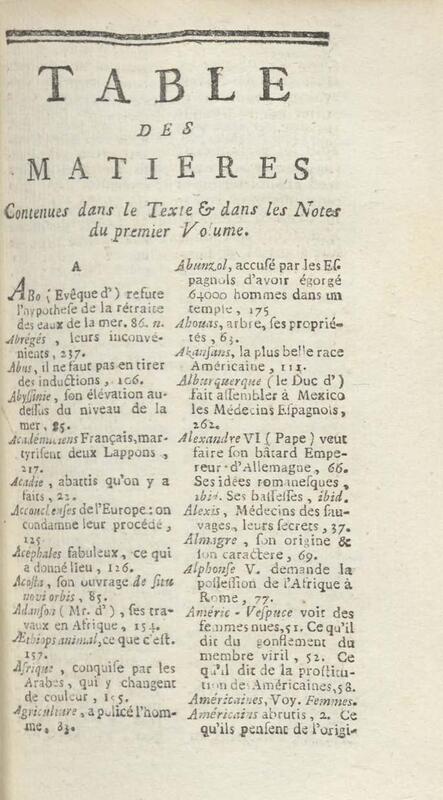 TABLE
DES
MATIERES
Contenues dans le Texte & dans les Notes
du premier Volume.
A
ABo (Evêque d') refute
l'hypothese de la rétraite
des eaux de la mer. 86. n.
Abrégés, leurs inconvé-
nients, 237.
Abus, il ne faut pas en tirer
des inductions, 106.
Abyssinie, son élévation au-
dessus du niveau de la
mer, 85.
Académiciens Français, mar-
tyrisent deux Lappons,
217.
Acadie, abattis qu'on y a
faits, 22.
Accoucheuses de l'Europe: on
condamne leur procédé,
125
Acephales fabuleux, ce qui
a donné lieu, 126.
Acosta, son ouvrage de situ
novi orbis, 85.
Adanson (Mr. d'), ses tra-
vaux en Afrique, 154.
Æthiops animal, ce que c'est.
157.
Afrique, conquise par les
Arabes, qui y changent
de couleur, 155.
Agriculture, a policé l'hom-
me, 83.
Abunzol, accusé par les Es-
pagnols d'avoir égorgé
64000 hommes dans un
temple, 175
Ahouas, arbre, ses proprié-
tés, 63.
Akansans, la plus belle race
Américaine, 111.
Alburquerque (le Duc d')
fait assembler à Mexico
les Médecins Espagnols,
262.
Alexandre VI (Pape) veut
faire son bâtard Empe-
reur d'Allemagne, 66.
Ses idées romanesques,
ibid. Ses bassesses, ibid.
Alexis, Médecins des sau-
vages, leurs secrets, 37.
Almagre, son origine &
son caractere, 69.
Alphonse V. demande la
possession de l'Afrique à
Rome, 77.
Améric-Vespuce voit des
femmes nues, 51. Ce qu'il
dit du gonflement du
membre viril, 52. Ce
qu'il dit de la prostitu-
tion de Américaines, 58.
Américaines, Voy. Femmes.
Américains abrutis, 2. Ce
qu'ils pensent de l'origi-